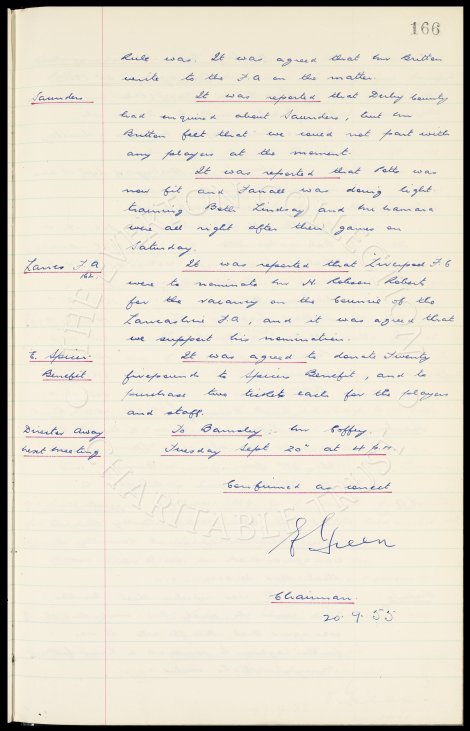 166
Rule was. It was agreed that Mr Britton
write to the F.A on the matter.
Saunders. It was reported that Derby County
had enquired about Saunders, but Mr
Britton felt that we could not part with
any players at the moment.
It was reported that Potts was
now fit and Farrall was doing light
training Both Lindsay and McNamara
were all right after their games on
Saturday.
Lancs F.A. It was reported that Liverpool F.C
were to nominate Mr H. Robson Roberts
for the vacancy on the Council of the
Lancashire F.A, and it was agreed that
we support his nomination.
E. Spicer It was agreed to donate Twenty
Benefit fivepounds to Spicers Benefit, and to
purchase two tickets each for the players
and staff.
Director away To Barnsley:- Mr Coffey.
next meeting Tuesday Sept 20" at 4 p.m.
Confirmed as correct
E Green
Chairman.
20. 9. 55
CHARITABLE TRUST